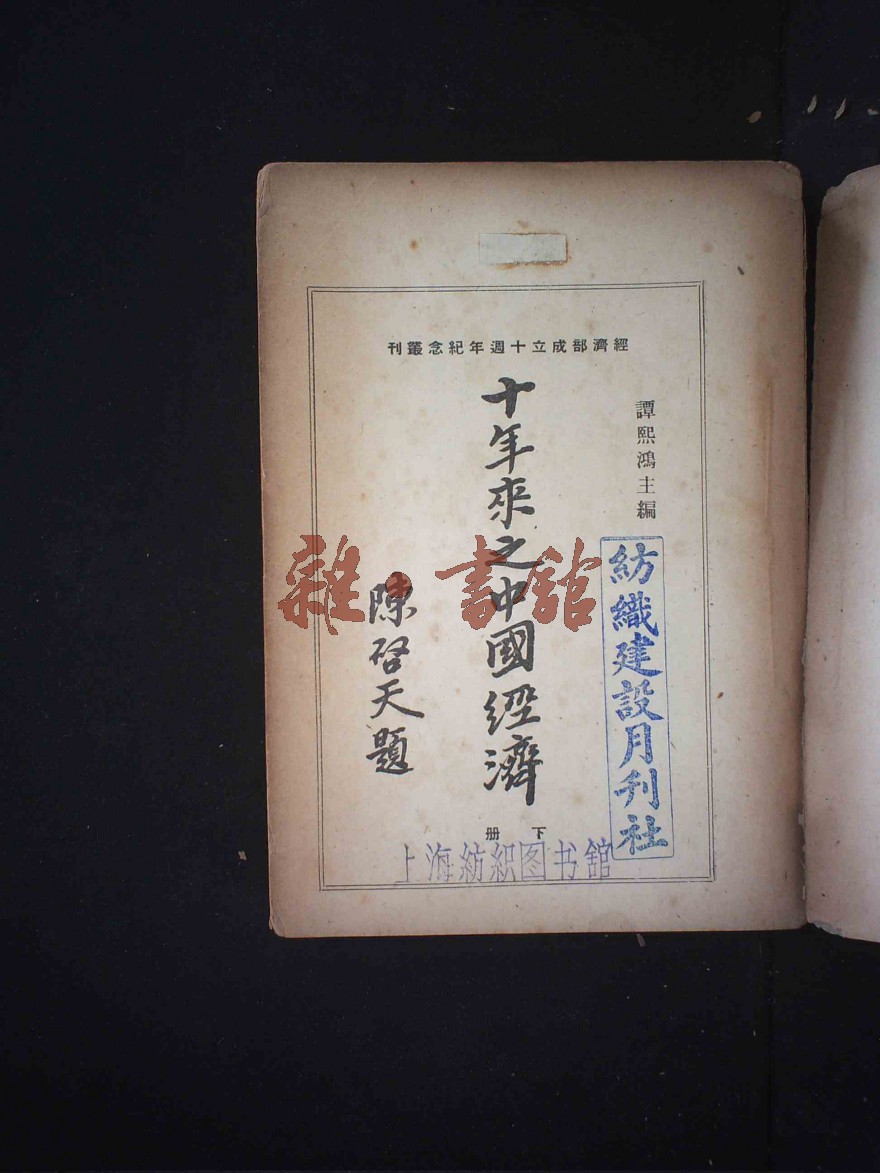 經濟部成立十週年紀念叢刊
譚熙鴻主編
十年來之中國經濟
陳啓天題
下册
紡織建設月刊社
上海紡织图书館
雜·書館